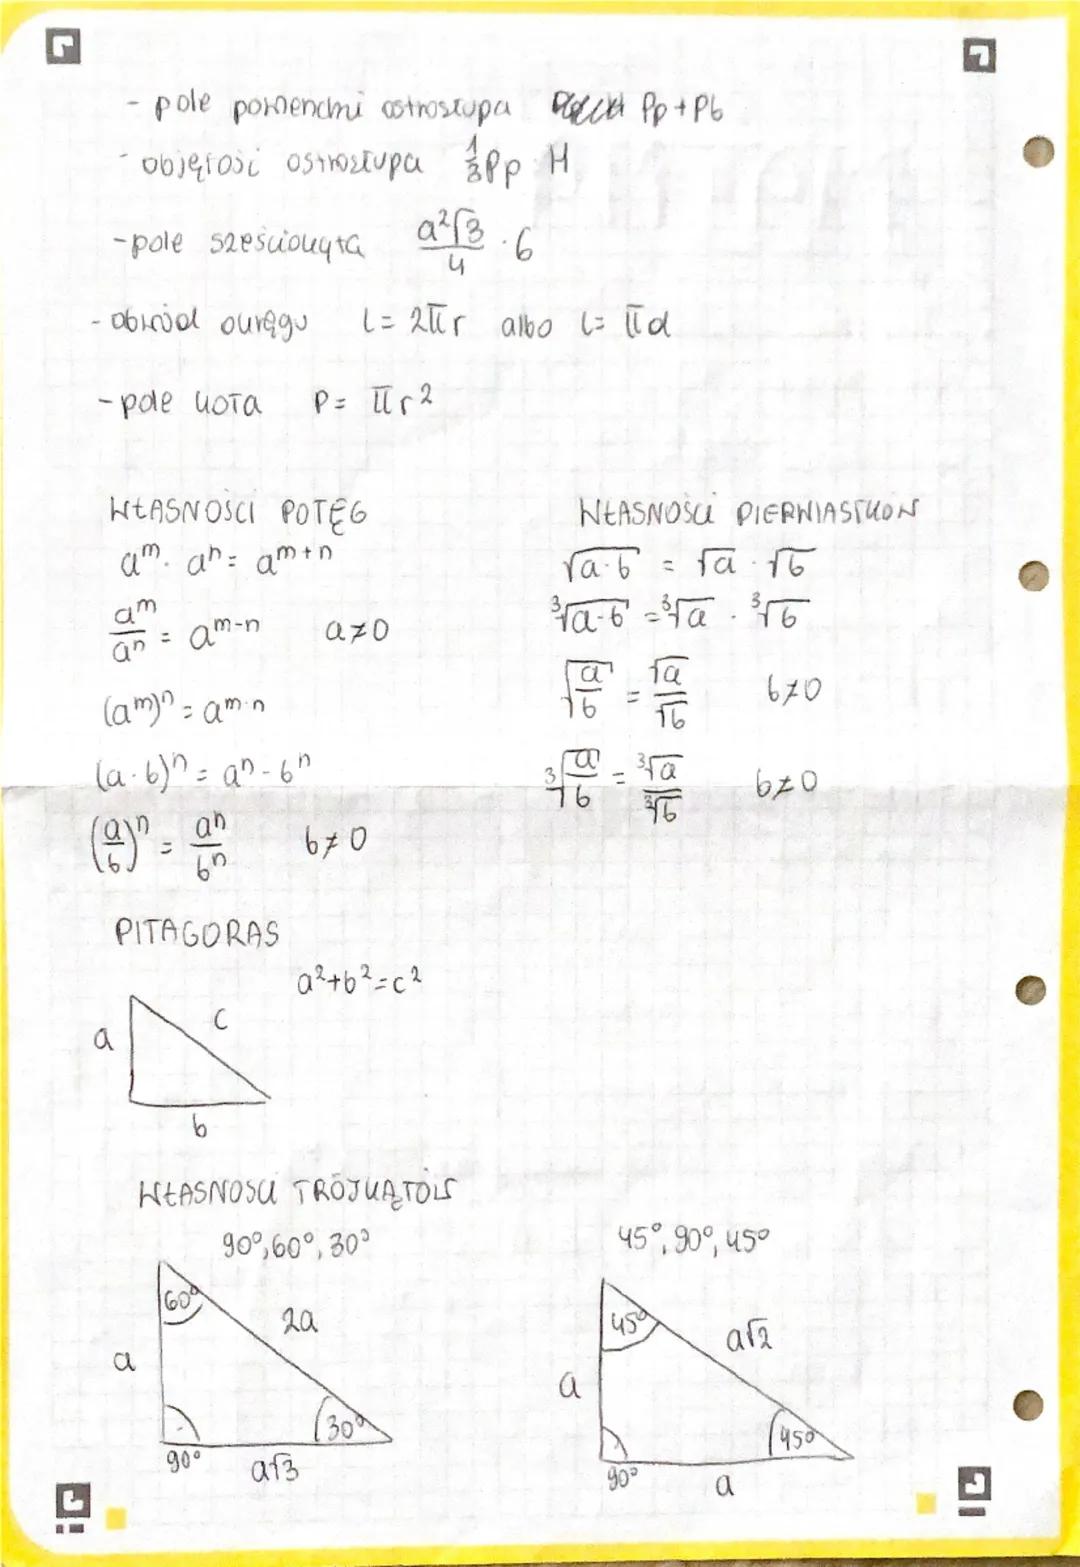 - pole powierzchni ostrosłupa Pp + Pb
- objętość ostrosłupa 1/3 Pp · H
- pole sześciokąta a²√3/4 · 6
- obwód okręgu L = 2πr albo L = πd
- pole koła P = πr²
WŁASNOŚCI POTĘG
aᵐ · aⁿ = aᵐ⁺ⁿ
aᵐ/aⁿ = aᵐ⁻ⁿ a≠0
(aᵐ)ⁿ = aᵐ·ⁿ
(a·b)ⁿ = aⁿ - bⁿ
(a/b)ⁿ = aⁿ/bⁿ b≠0
WŁASNOŚCI PIERWIASTKÓW
√a·b = √a · √b
³√a·b = ³√a · ³√b
√a/b = √a/√b b≠0
³√a/b = ³√a/³√b b≠0
PITAGORAS
a²+b²=c²
a
c
b
WŁASNOŚCI TRÓJKĄTÓW
90°, 60°, 30°
60°
2a
a
30°
90°
a√3
45°, 90°, 45°
45°
a√2
a
45°
90°
a